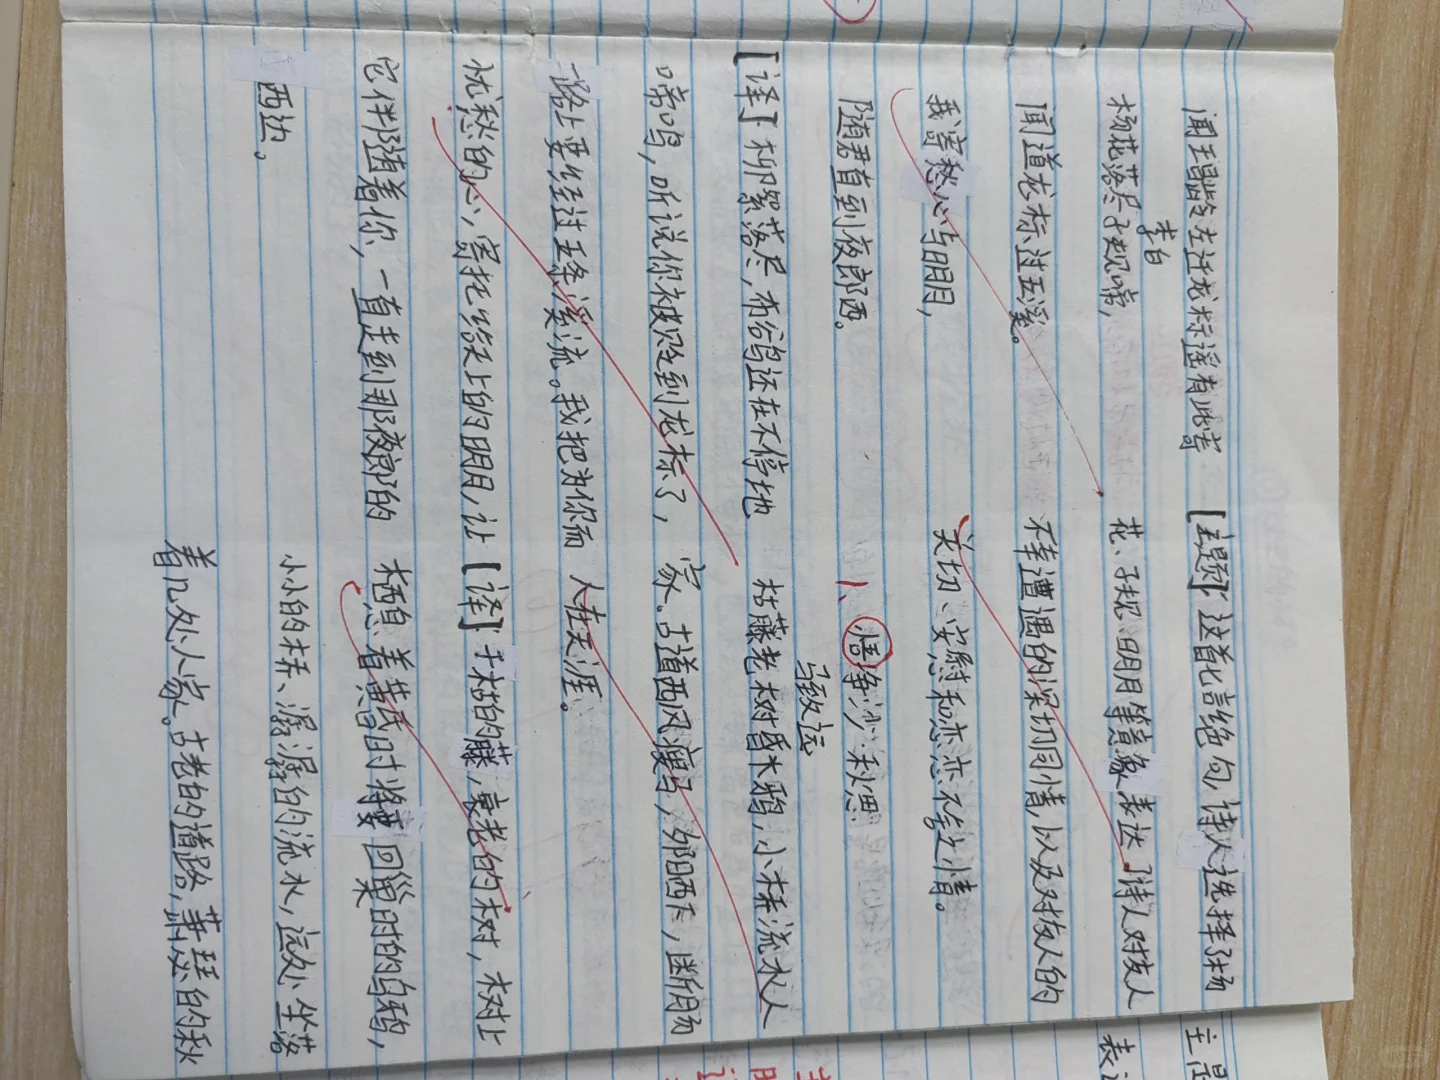 闻王昌龄左迁龙标遥有此寄
李白
杨花落尽子规啼,
闻道龙标过五溪。
我寄愁心与明月,
随君直到夜郎西。
[译]柳絮落尽,布谷鸟还在不停地
啼鸣,听说你被贬到龙标了,
一路上要经过五条溪流。我把为你而
忧愁的心,寄托给天上的明月,让
它伴随着你,一直走到那夜郎的
西边。
[主题]这首七言绝句,诗人选择了杨
花、子规、明月等意象表达了诗人对友人
不幸遭遇的深切同情,以及对友人的
关切、安慰和恋恋不舍之情。
1、净沙·秋思
马致远
枯藤老树昏鸦,小桥流水人
家。古道西风瘦马,夕阳西下,断肠
人在天涯。
[译]:干枯的藤,衰老的树,树上
栖息着黄昏时将要回巢时的乌鸦,
小小的桥、潺潺的流水,远处坐落
着几处人家。古老的道路,萧瑟的秋
主
表